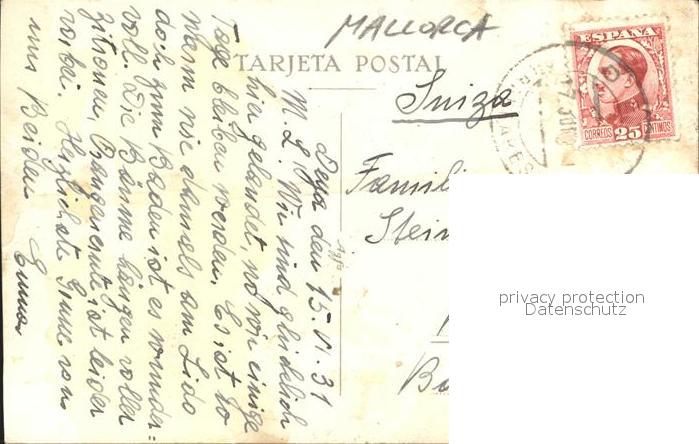 MALLORCA
TARJETA POSTAL
ESPAÑA
CORREOS 25 CENTIMOS
Suiza
Famili
Stein
Ba
Deya den 15. VI. 31
M. L. Wir sind glücklich
hier gelandet, wo wir einige
Tage bleiben werden. Es ist so
warm wie damals am Lido
doch zum Baden ist es wunder=
voll. Die Bäume hängen voller
Zitronen, Orangenernte ist leider
vorbei. Herzlichste Grüsse von
uns Beiden
Emma
privacy protection
Datenschutz